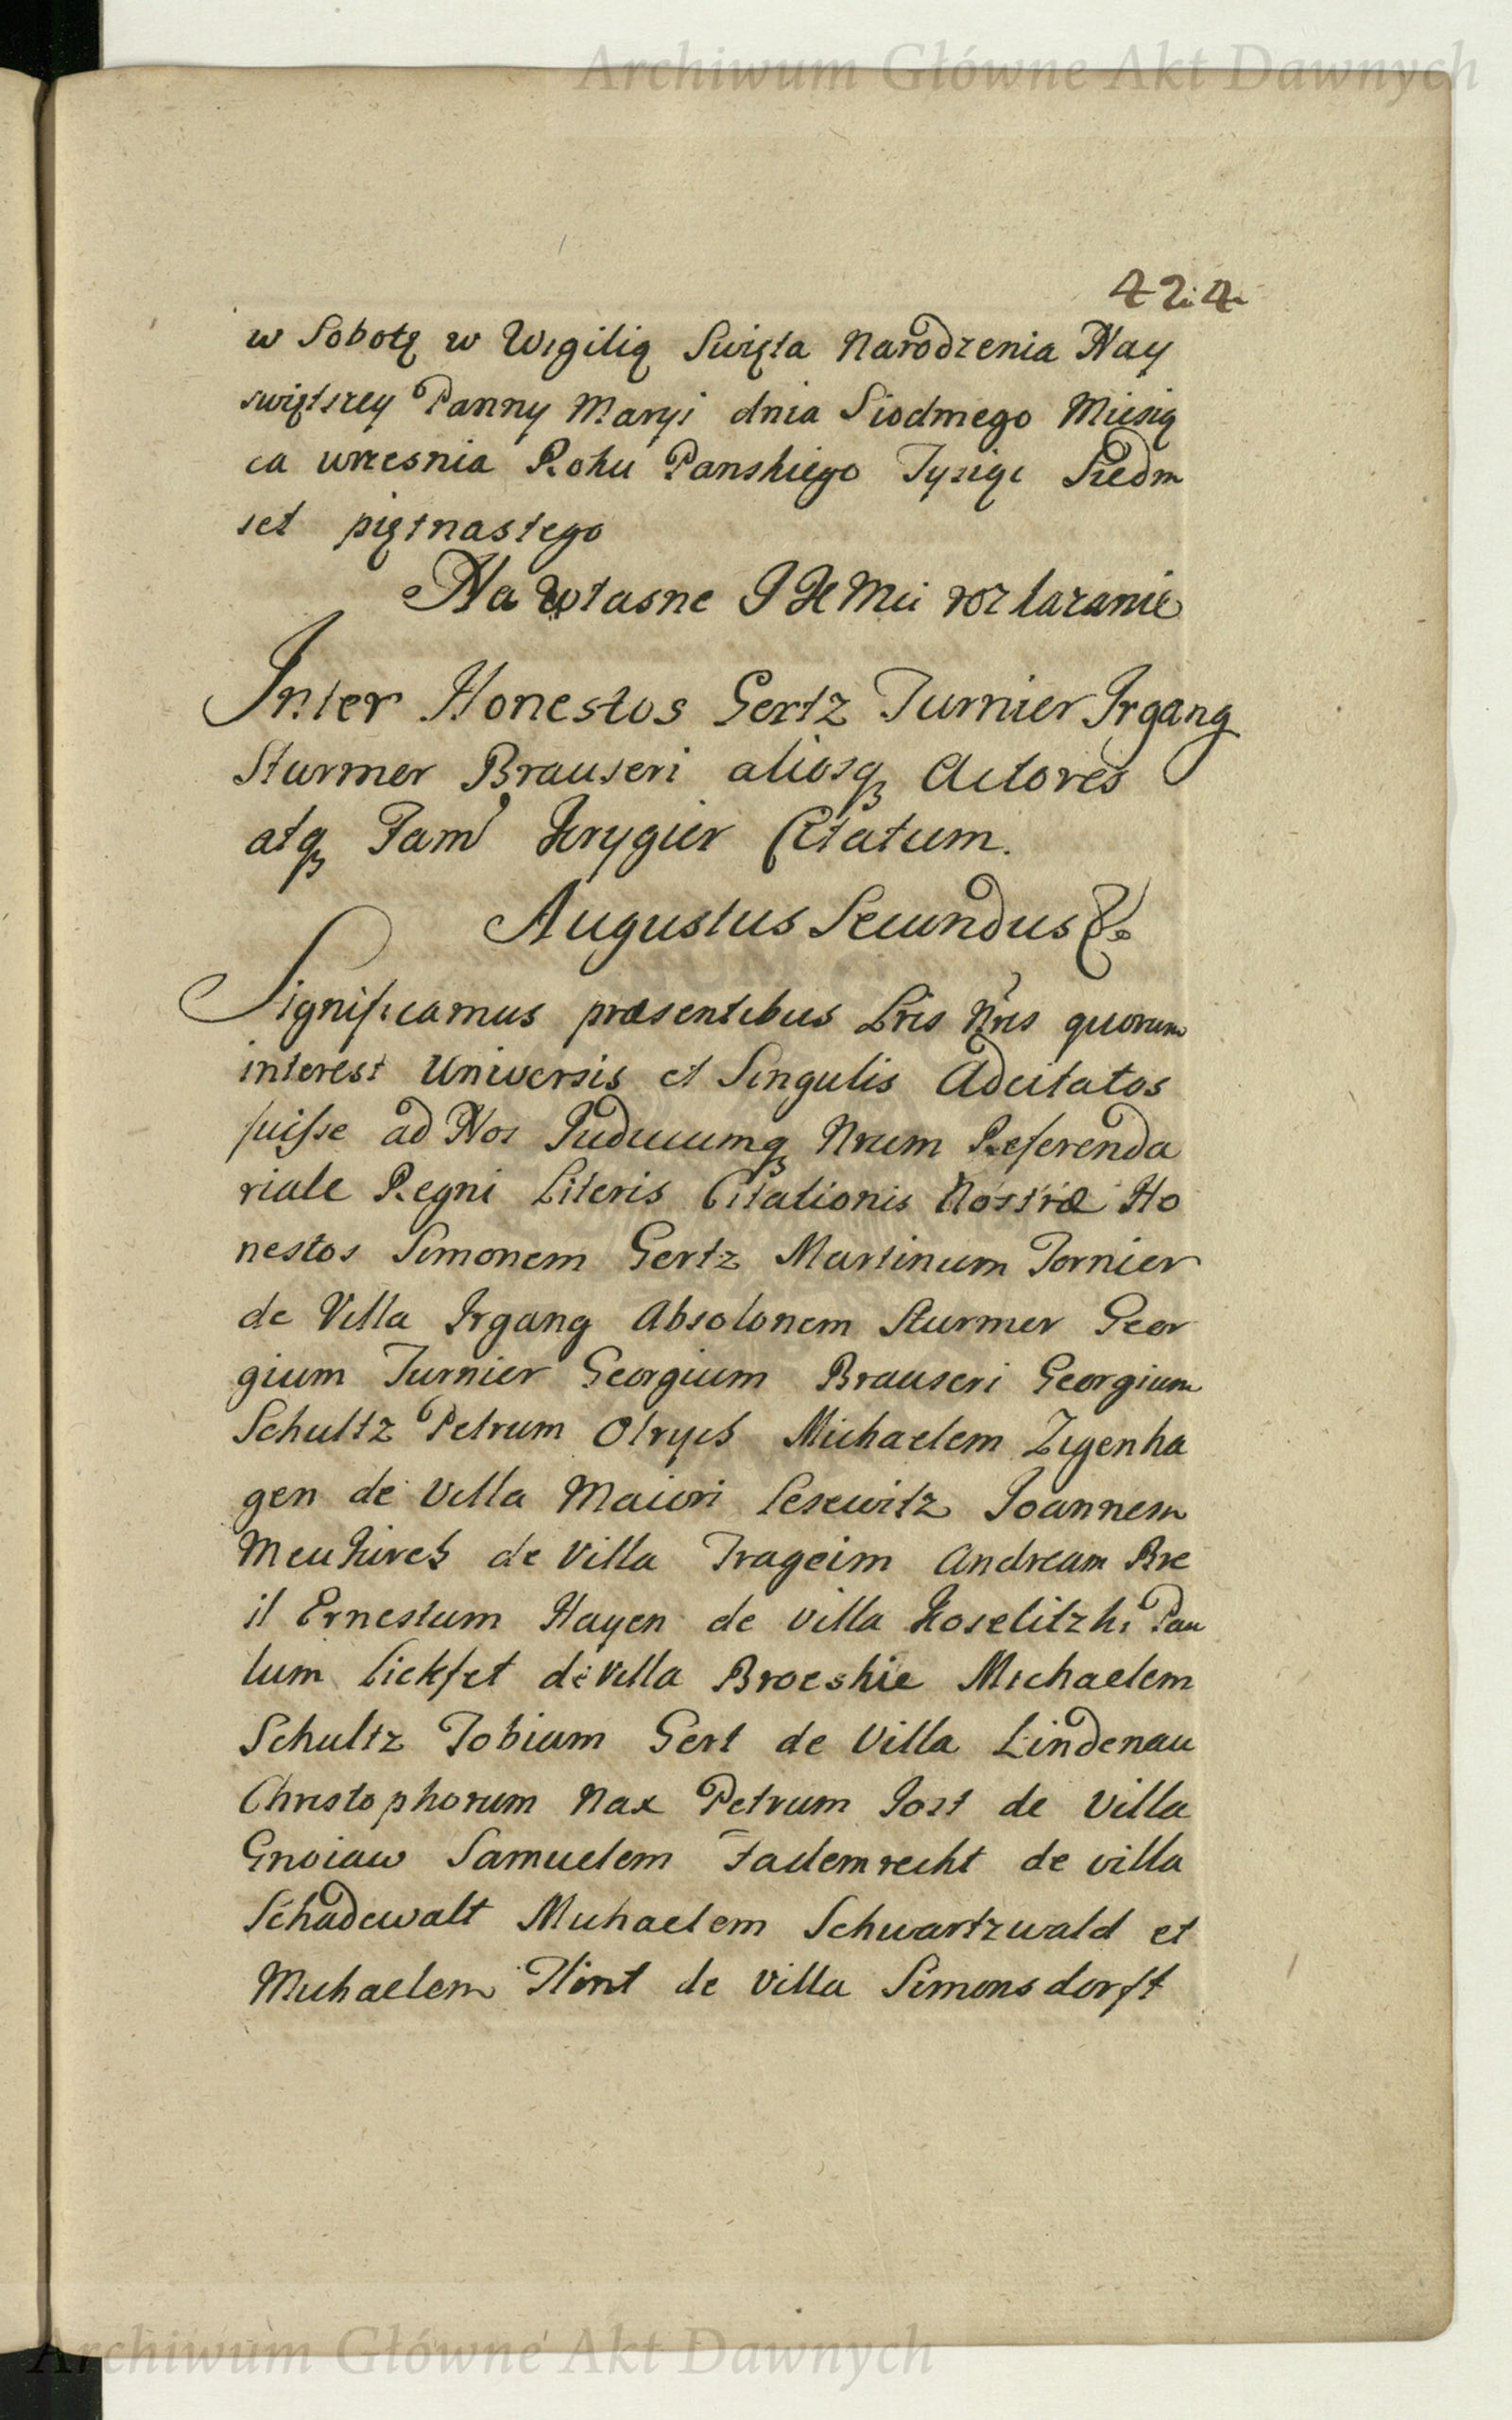 Archiwum Główne Akt Dawnych
424
w Sobotę w Wigilią Swięta Narodzenia Nay
swiętszey Panny Maryi dnia Siodmego Miesią
ca wrzesnia Roku Panskiego Tysiąc Siedm
set piętnastego
Na własne JKMci rozkazanie
Inter Honestos Gertz Turnier Irgang
Sturmer Brauseri aliosq Actores
atq Fam Krygier Citatum.
Augustus Secundus &
Significamus præsentibus Lris Nris quorum
interest Universis et Singulis Adcitatos
fuisse ad Nos Judiciumq Nrum Referenda
riale Regni Literis Citationis Nostræ Ho
nestos Simonem Gertz Martinum Tornier
de Villa Irgang Absolonem Sturmer Geor
gium Turnier Georgium Brauseri Georgium
Schultz Petrum Olrych Michaelem Zigenha
gen de Villa Maiori Lesewitz Joannem
de Villa Trageim Andream Bre
il Ernestum Hayen de villa Koselitzki Pau
lum Lickfet de Villa Broeskie Michaelem
Schultz Tobium Gert de Villa Lindenau
Christophorum Nax Petrum Jost de Villa
Gnoiaw Samuelem Fademrecht de villa
Schadewalt Michaelem Schwartzwald et
Michaelem Flint de Villa Simonsdorft
Archiwum Główne Akt Dawnych